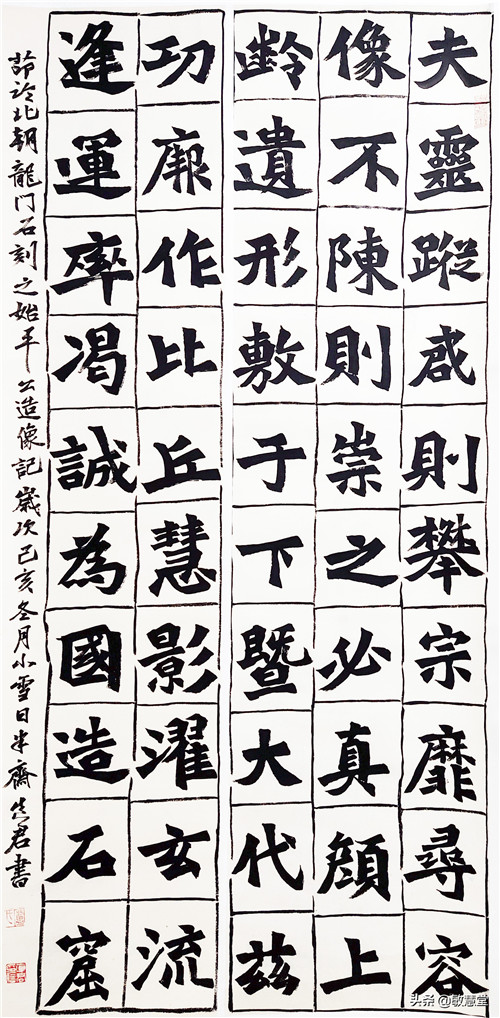 夫靈蹤咸則攀宗靡尋容
像不陳則崇之必真顏上
齡遺形敷于下暨大代茲
功厥作比丘慧影濯玄流
逢運率渴誠為國造石窟
節於北朝龍門石刻之始平公造像記歲次己亥冬月小雪日半齋君書
头条 @敏慧堂